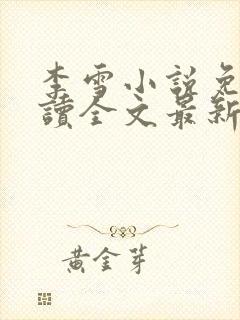 李雪小說免
讀全文最新
黃金芽